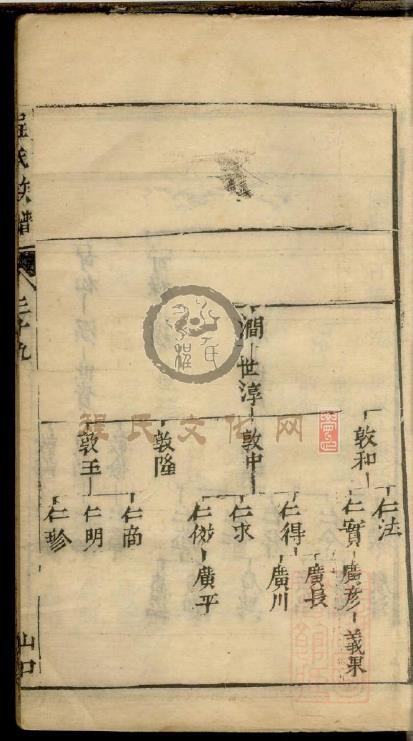 程氏族譜
二十九
山口
澗 世淳
敦和
敦中
敦隆
敦玉
仁法
仁實 廣彥 義果
仁得
廣長
廣川
仁求
仁㳂 廣平
仁商
仁明
仁珍
程氏文化网